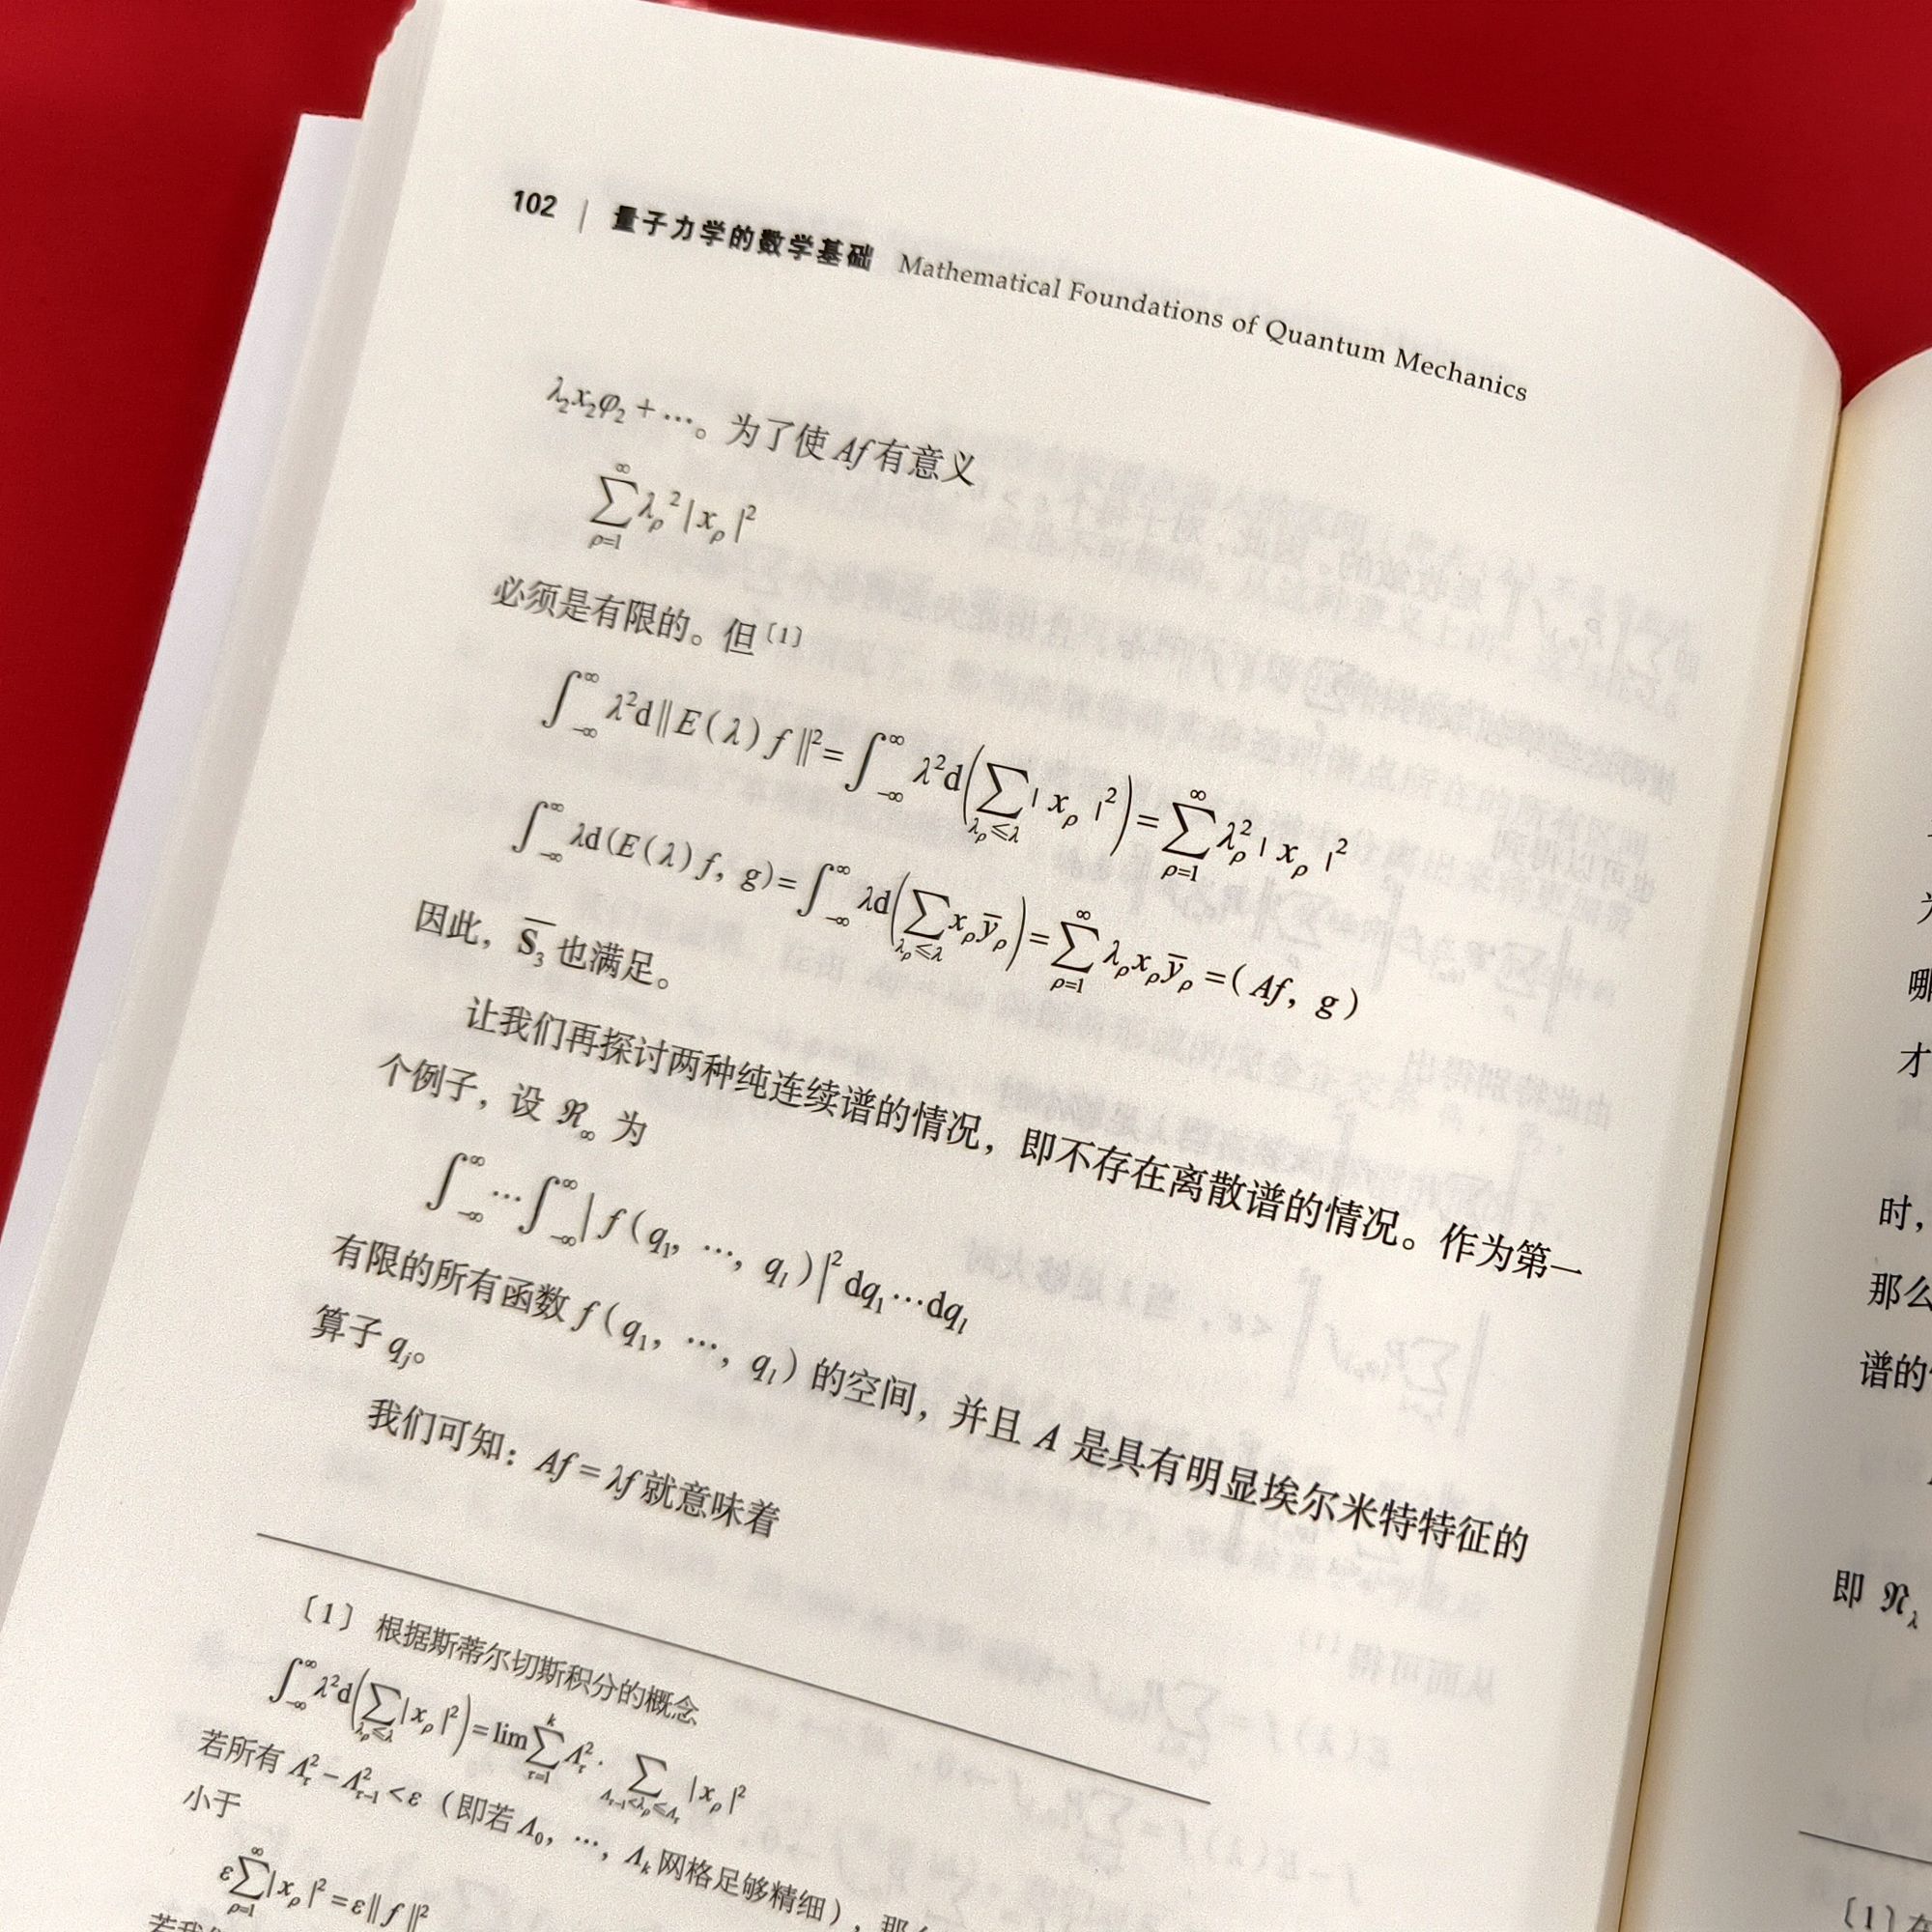 102 | 量子力学的数学基础 Mathematical Foundations of Quantum Mechanics
λ₂x₂φ₂ + ⋯。为了使 Af 有意义
∑_{ρ=1}^{∞} λ_ρ² | x_ρ |²
必须是有限的。但〔1〕
∫_{-∞}^{∞} λ²d‖E(λ) f‖² = ∫_{-∞}^{∞} λ²d(∑_{λ_ρ≤λ} | x_ρ |²) = ∑_{ρ=1}^{∞} λ_ρ² | x_ρ |²
∫_{-∞}^{∞} λd(E(λ) f, g) = ∫_{-∞}^{∞} λd(∑_{λ_ρ≤λ} x_ρ ȳ_ρ) = ∑_{ρ=1}^{∞} λ_ρ x_ρ ȳ_ρ = (Af, g)
因此, S̅₃ 也满足。
让我们再探讨两种纯连续谱的情况，即不存在离散谱的情况。作为第一
个例子，设 ℜ_∞ 为
∫_{-∞}^{∞} ⋯ ∫_{-∞}^{∞} | f(q₁, ⋯, q_l) |² dq₁⋯dq_l
有限的所有函数 f(q₁, ⋯, q_l) 的空间，并且 A 是具有明显埃尔米特特征的
算子 q_j。
我们可知：Af = λf 就意味着
〔1〕 根据斯蒂尔切斯积分的概念
∫_{-∞}^{∞} λ²d(∑_{λ_ρ≤λ} | x_ρ |²) = lim ∑_{τ=1}^{k} Λ_τ² · ∑_{Λ_{τ-1}<λ_ρ≤Λ_τ} | x_ρ |²
若所有 Λ_τ² − Λ_{τ-1}² < ε （即若 Λ₀, ⋯, Λ_k 网格足够精细），那
小于
ε∑_{ρ=1}^{∞} | x_ρ |² = ε‖ f ‖²
哪
才
时，
那么
谱的
即 ℜ_λ
〔1〕在